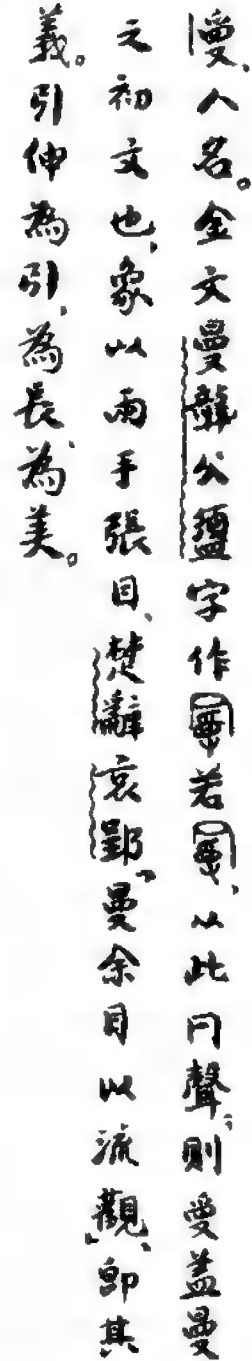 、人名。金文曼龔父盨字作若，从此冂聲；則蓋曼
之初文也，象以兩手張目，楚辭哀郢「曼余目以流觀」，即其
義。引伸為引，為長，為美。